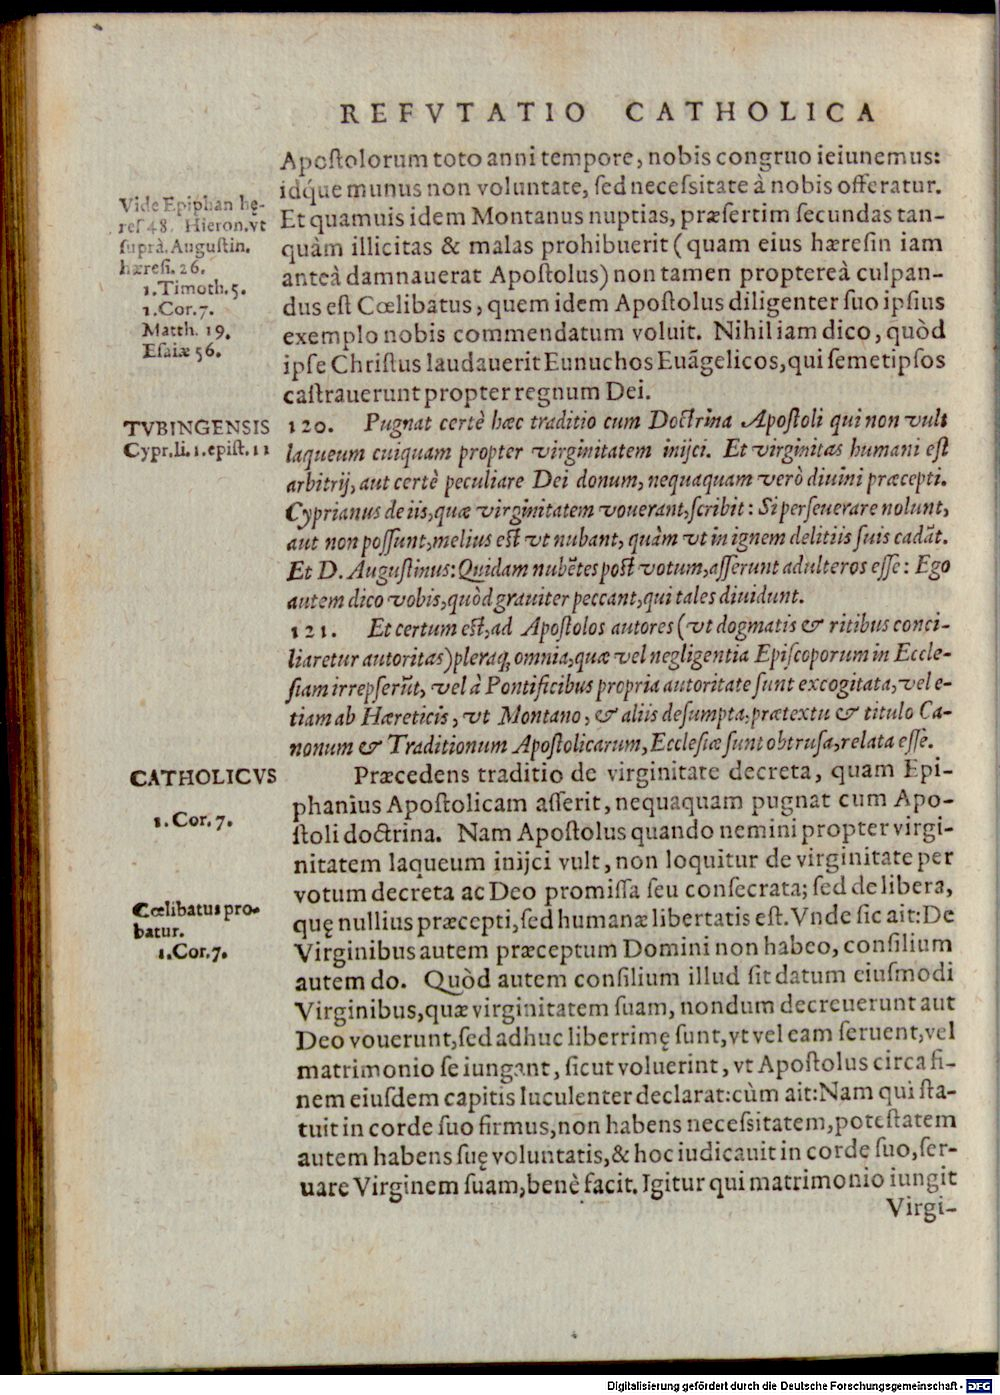 REFVTATIO CATHOLICA
Apoſtolorum toto anni tempore, nobis congruo ieiunemus:
idq́ue munus non voluntate, ſed neceſsitate à nobis offeratur.
Vide Epiphan hę-
reſ 48. Hieron. vt
ſuprà. Auguſtin.
hæreſi. 26.
1. Timoth. 5.
1. Cor. 7.
Matth. 19.
Eſaiæ 56.
Et quamuis idem Montanus nuptias, præſertim ſecundas tan-
quàm illicitas & malas prohibuerit (quam eius hæreſin iam
anteà damnauerat Apoſtolus) non tamen proptereà culpan-
dus eſt Cœlibatus, quem idem Apoſtolus diligenter ſuo ipſius
exemplo nobis commendatum voluit. Nihil iam dico, quòd
ipſe Chriſtus laudauerit Eunuchos Euãgelicos, qui ſemetipſos
caſtrauerunt propter regnum Dei.
TVBINGENSIS
Cypr. li. 1. epiſt. 11
120. Pugnat certè hæc traditio cum Doctrina Apoſtoli qui non vult
laqueum cuiquam propter virginitatem inijci. Et virginitas humani eſt
arbitrij, aut certè peculiare Dei donum, nequaquam verò diuini præcepti.
Cyprianus de iis, quæ virginitatem vouerant, ſcribit: Si perſeuerare nolunt,
aut non poſſunt, melius eſt vt nubant, quàm vt in ignem delitiis ſuis cadãt.
Et D. Auguſtinus: Quidam nubẽtes poſt votum, aſſerunt adulteros eſſe: Ego
autem dico vobis, quòd grauiter peccant, qui tales diuidunt.
121. Et certum eſt, ad Apoſtolos autores (vt dogmatis & ritibus conci-
liaretur autoritas) pleraq; omnia, quæ vel negligentia Epiſcoporum in Eccle-
ſiam irrepſerũt, vel à Pontificibus propria autoritate ſunt excogitata, vel e-
tiam ab Hæreticis, vt Montano, & aliis deſumpta, prætextu & titulo Ca-
nonum & Traditionum Apoſtolicarum, Eccleſiæ ſunt obtruſa, relata eſſe.
CATHOLICVS
1. Cor. 7.
Præcedens traditio de virginitate decreta, quam Epi-
phanius Apoſtolicam aſſerit, nequaquam pugnat cum Apo-
ſtoli doctrina. Nam Apoſtolus quando nemini propter virgi-
nitatem laqueum inijci vult, non loquitur de virginitate per
votum decreta ac Deo promiſſa ſeu conſecrata; ſed de libera,
Cœlibatus pro-
batur.
1. Cor. 7.
quę nullius præcepti, ſed humanæ libertatis eſt. Vnde ſic ait: De
Virginibus autem præceptum Domini non habeo, conſilium
autem do. Quòd autem conſilium illud ſit datum eiuſmodi
Virginibus, quæ virginitatem ſuam, nondum decreuerunt aut
Deo vouerunt, ſed adhuc liberrimę ſunt, vt vel eam ſeruent, vel
matrimonio ſe iungant, ſicut voluerint, vt Apoſtolus circa fi-
nem eiuſdem capitis luculenter declarat: cùm ait: Nam qui ſta-
tuit in corde ſuo firmus, non habens neceſsitatem, poteſtatem
autem habens ſuę voluntatis, & hoc iudicauit in corde ſuo, ſer-
uare Virginem ſuam, benè facit. Igitur qui matrimonio iungit
Virgi-
Digitalisierung gefördert durch die Deutsche Forschungsgemeinschaft - DFG